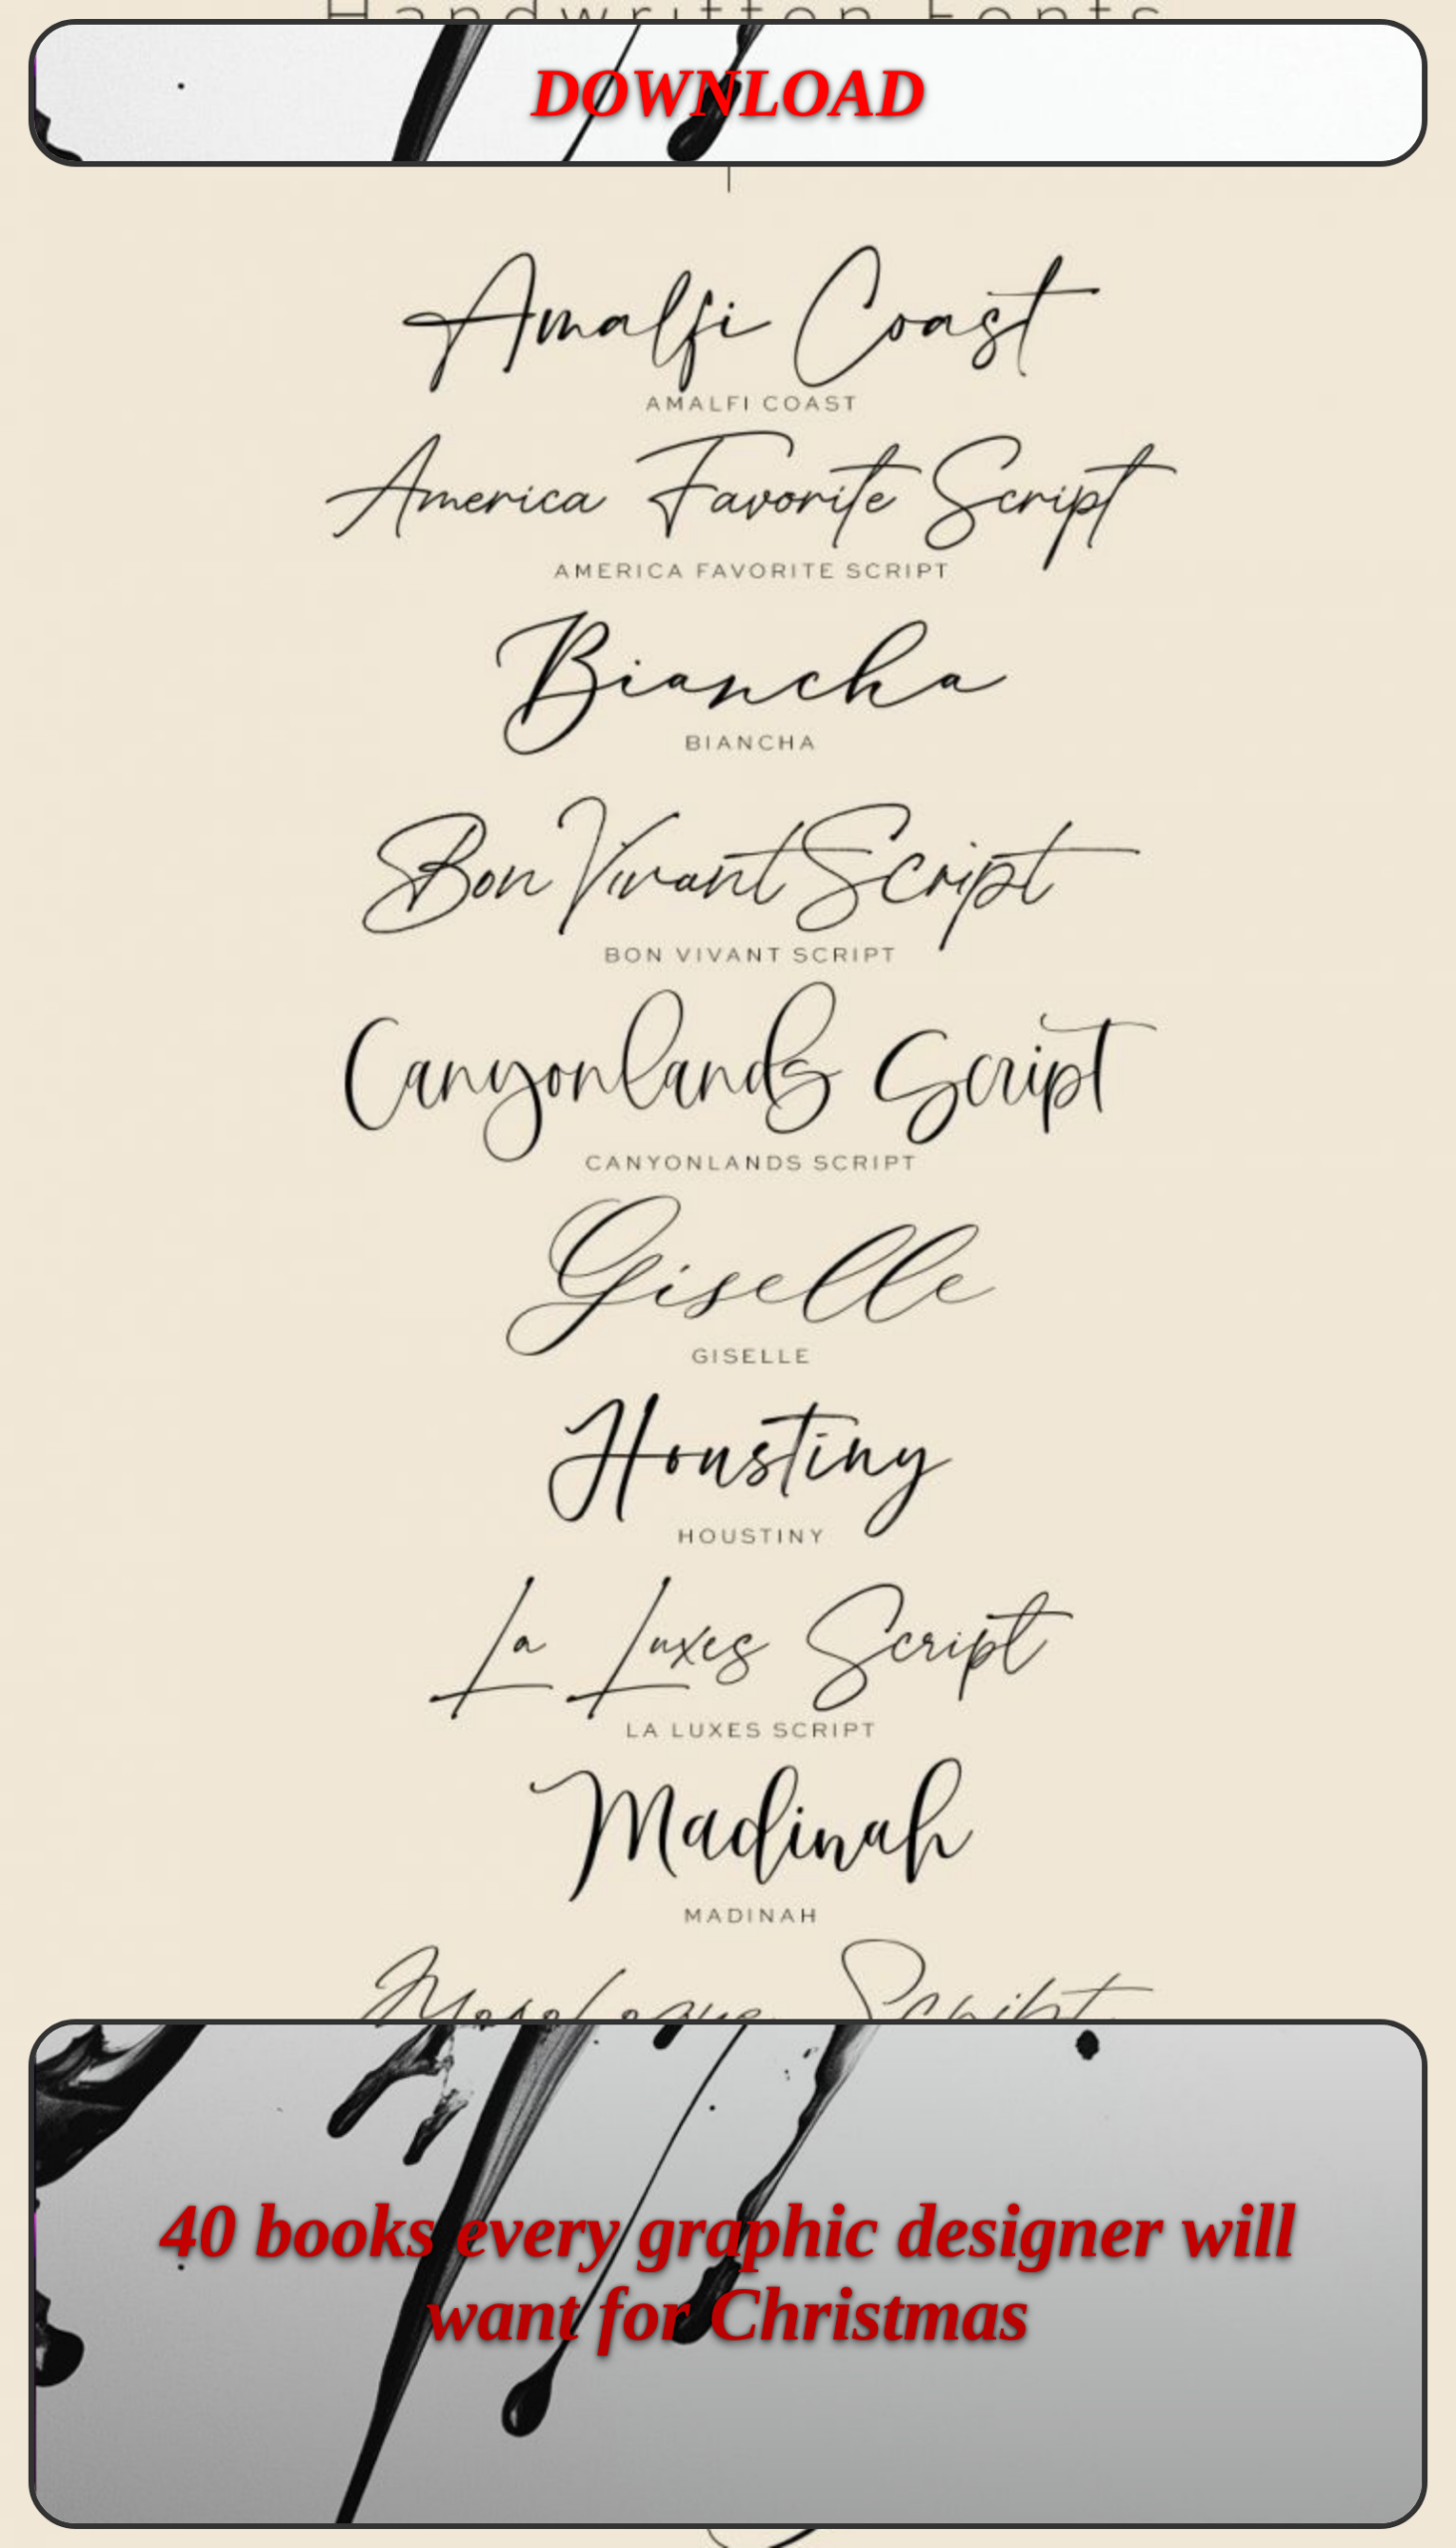 Handwritten Fonts
DOWNLOAD
Amalfi Coast
AMALFI COAST
America Favorite Script
AMERICA FAVORITE SCRIPT
Biancha
BIANCHA
Bon Vivant Script
BON VIVANT SCRIPT
Canyonlands Script
CANYONLANDS SCRIPT
Giselle
GISELLE
Houstiny
HOUSTINY
La Luxes Script
LA LUXES SCRIPT
Madinah
MADINAH
Script
40 books every graphic designer will
want for Christmas